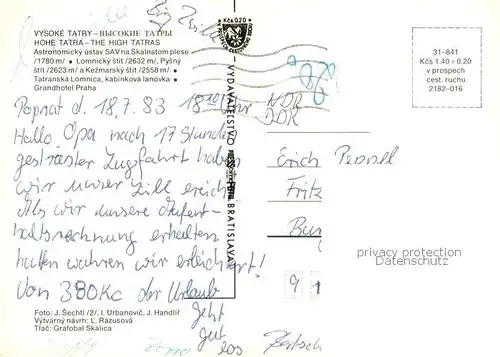 VYSOKÉ TATRY – ВЫСОКИЕ ТАТРЫ
HOHE TATRA – THE HIGH TATRAS
Astronomický ústav SAV na Skalnatom plese
/1780 m/ • Lomnický štít /2632 m/, Pyšný
štít /2623 m/ a Kežmarský štít /2558 m/ •
Tatranská Lomnica, kabínková lanovka •
Grandhotel Praha
Poprat d. 18.7.83 18
Hallo Opa nach 17 Stunden
gestraster Zugfahrt haben
wir unser Zill ereich
Als wir unsere Aufent-
haltsrechnung erhalten
hatten wahren wir erleichert!
Von 380Kc der Urlaub
geht
gut
los
Foto: J. Šechtl /2/, I. Urbanovič, J. Handlíř
Výtvarný návrh: Ľ. Rázusová
Tlač: Grafobal Skalica
VYDAVATEĽSTVO
BRATISLAVA
Kčs 0.20
31–841
Kčs 1.40 + 0.20
v prospech
cest. ruchu
2182–016
DDR
Erich
Fritz
privacy protection
Datenschutz
9 1